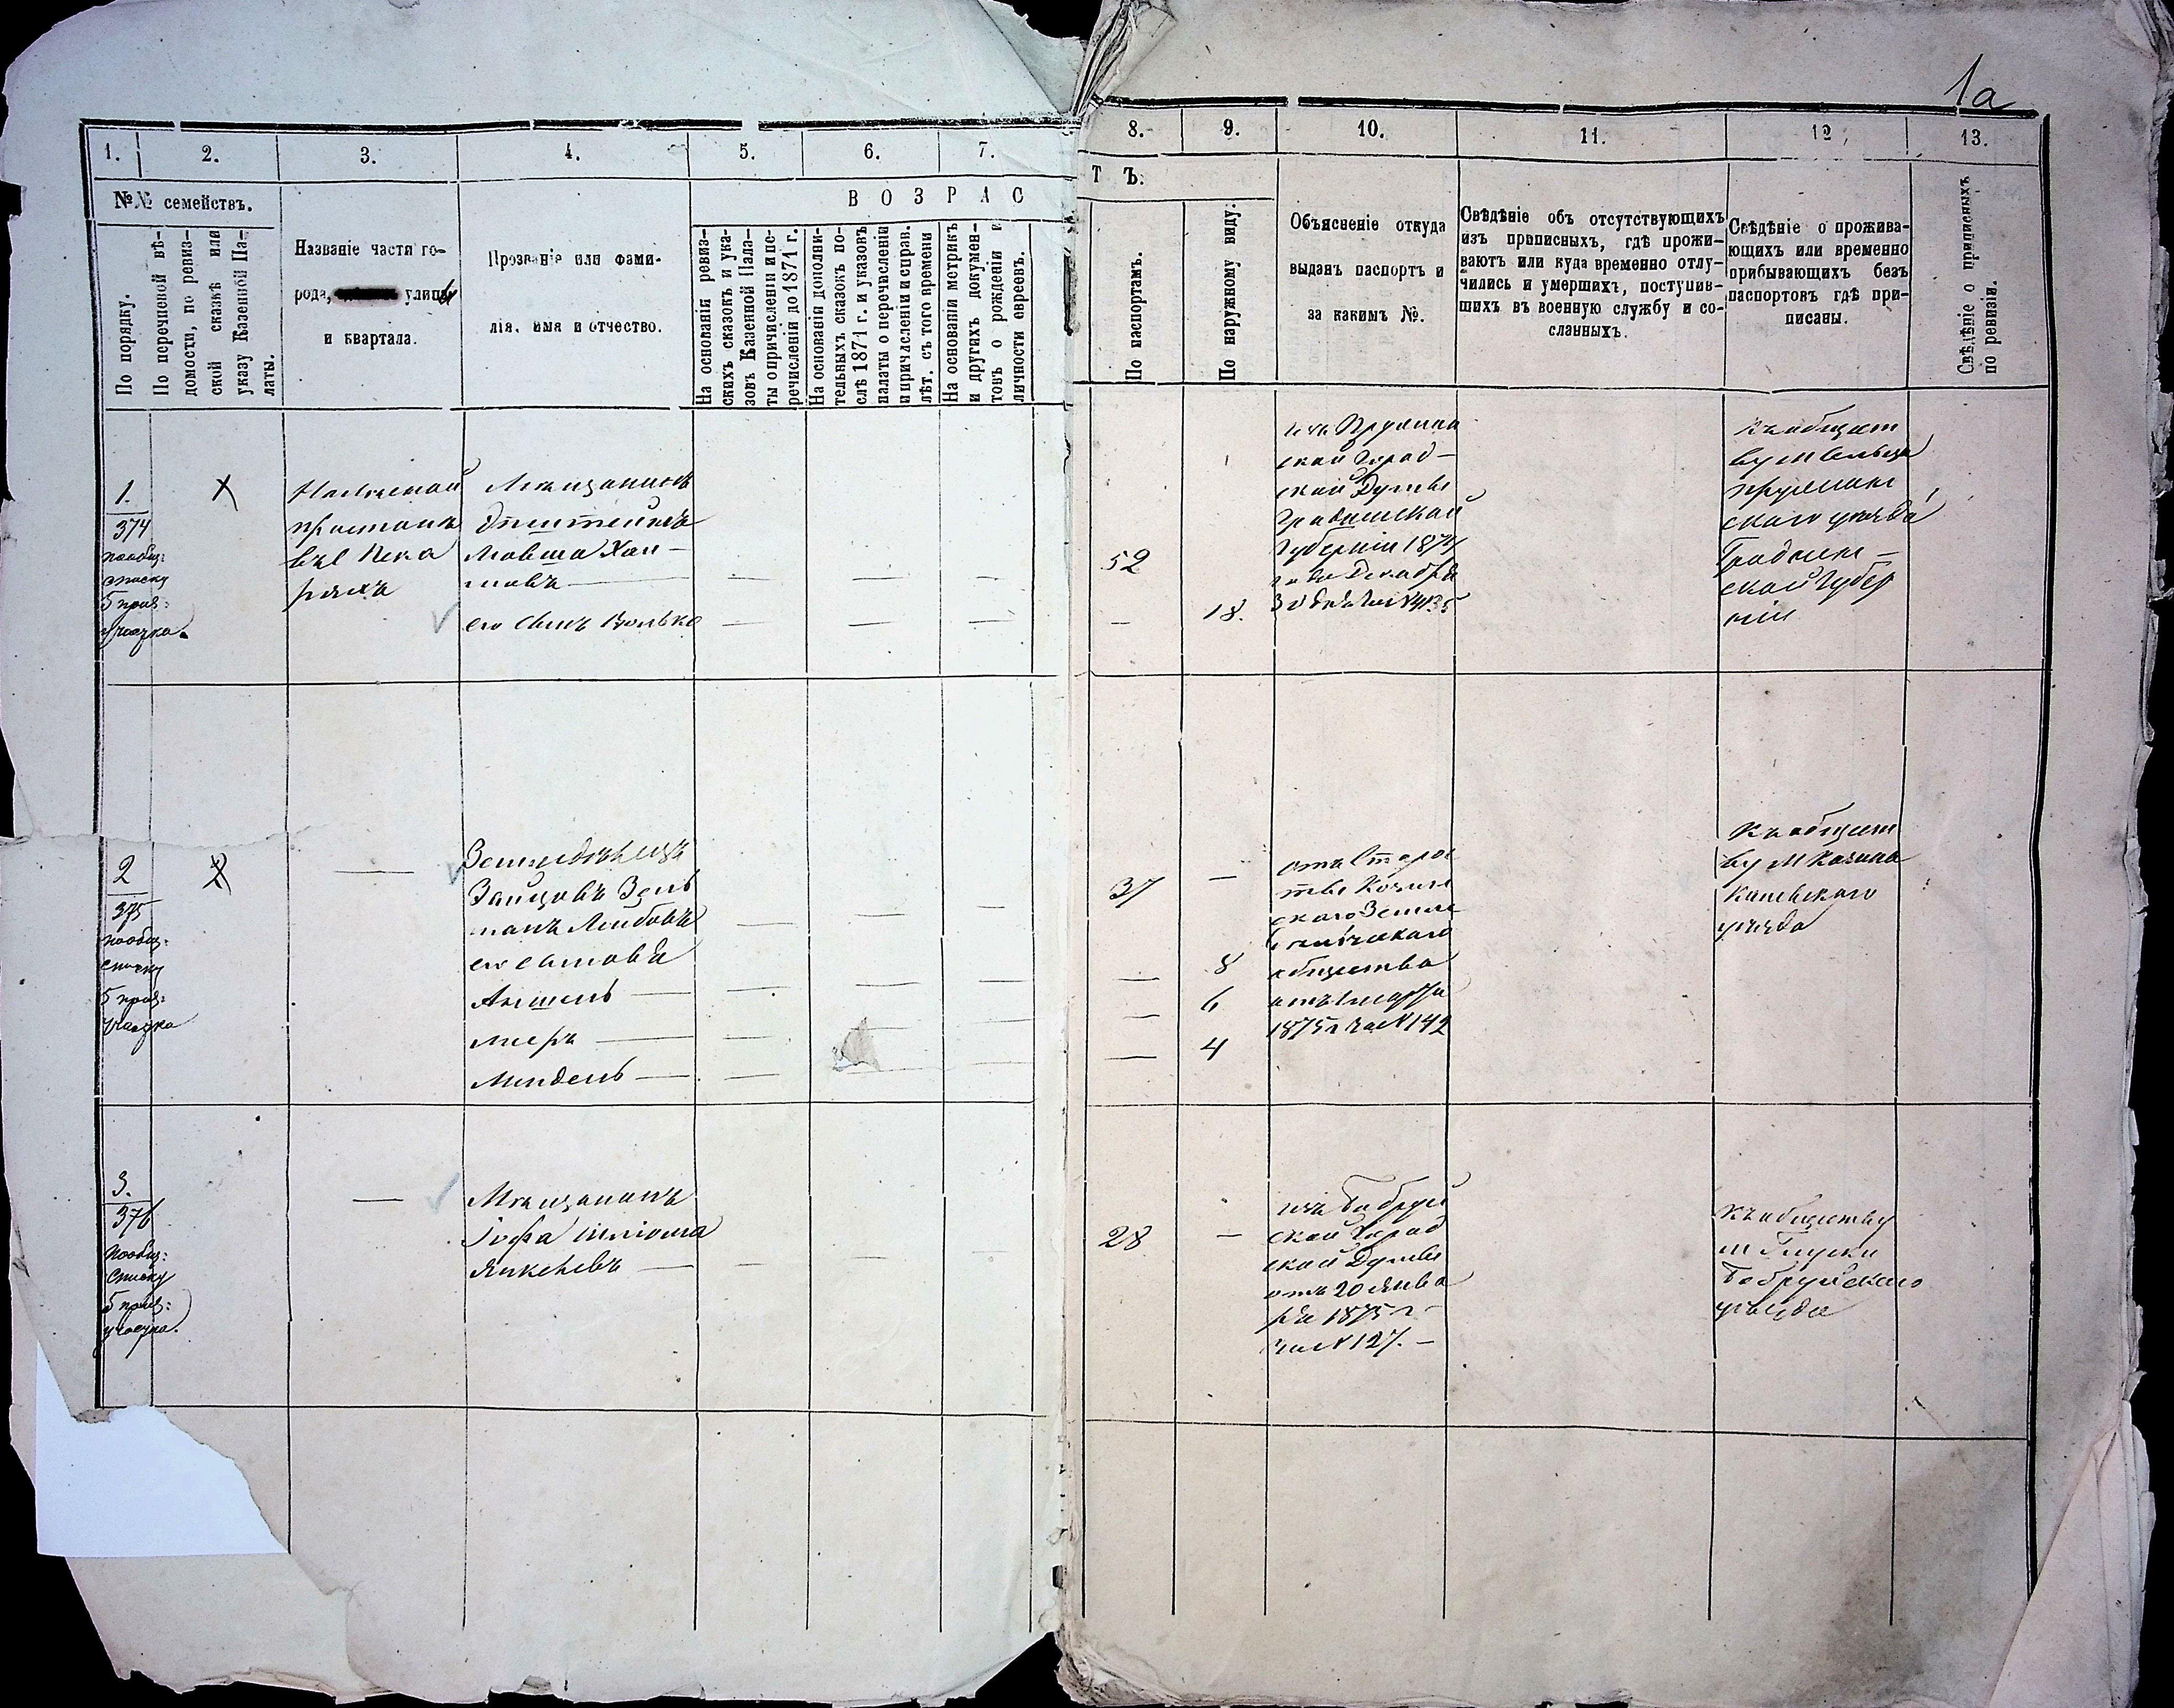 1а
1.
2.
3.
4.
5.
6.
7.
8.
9.
10.
11.
12.
13.
№№ семействъ.
По порядку.
По перечневой вѣ-
домости, по ревиз-
ской сказкѣ или
указу Казенной Па-
латы.
Названіе части го-
рода, улицы
и квартала.
Прозваніе или фами-
лія, имя и отчество.
ВОЗРАС
Т Ъ:
На основаніи ревиз-
скихъ сказокъ и ука-
зовъ Казенной Пала-
ты о причисленіи и пе-
речисленіи до 1871 г.
На основаніи дополни-
тельныхъ сказокъ по-
слѣ 1871 г. и указовъ
палаты о перечисленіи
и причисленіи и справ.
лѣт. съ того времени
На основаніи метрикъ
и другихъ докумен-
товъ о рожденіи и
личности евреевъ.
По паспортамъ.
По наружному виду:
Объясненіе откуда
выданъ паспортъ и
за какимъ №.
Свѣдѣніе объ отсутствующихъ
изъ приписныхъ, гдѣ прожи-
ваютъ или куда временно отлу-
чились и умершихъ, поступив-
шихъ въ военную службу и со-
сланныхъ.
Свѣдѣніе о прожива-
ющихъ или временно
прибывающихъ безъ
паспортовъ гдѣ при-
писаны.
Свѣдѣніе о приписныхъ
по ревизіи.
1.
374
пообщ:
списку
5 приз:
участка.
х
Мѣщанинъ
Эпштейнъ
Мовша Хаи-
мовъ —
его сынъ Волько
52
18.
изъ Пружан
ской Город-
ской Думы
Гродненской
Губерніи 1874
года Декабря
30 дня за №4135
къ обществу
ву м Сельца
Пружанс
скаго уѣзда
Гроднен-
ской Губер
ніи
2
375
пообщ:
списку
5 приз:
участка
—
Земледѣлецъ
Зайцовъ Зель
манъ Лейбовъ
его сыновья
Аншель —
Меръ —
Мендель —
37
—
8
6
4
отъ Старос
тво Козин
скаго Земле
дѣльческаго
общества
отъ 1 марта
1875 г за №142
къ общест
ву м Козина
Каневскаго
уѣзда
3.
376
пообщ:
списку
5 приз:
участка.
—
Мѣщанинъ
Іофа Шліома
Янкелевъ —
28
—
изъ Бобруй
ской Город
ской Думы
отъ 20 Янва
ря 1875 г
за №127. —
къ обществу
м Глуска
Бобруйскаго
уѣзда